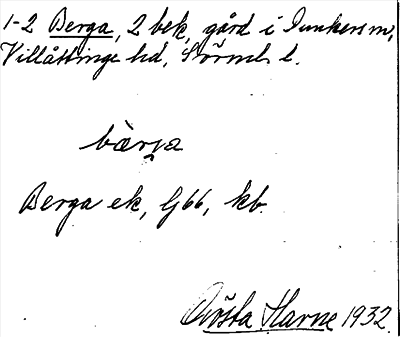 1-2 Berga, 2 bek, gård i Dunkers sn,
Villåttinge hd, Sörml l.
bærga
Berga ek, Gj 66, kb.
Gösta Harne 1932.